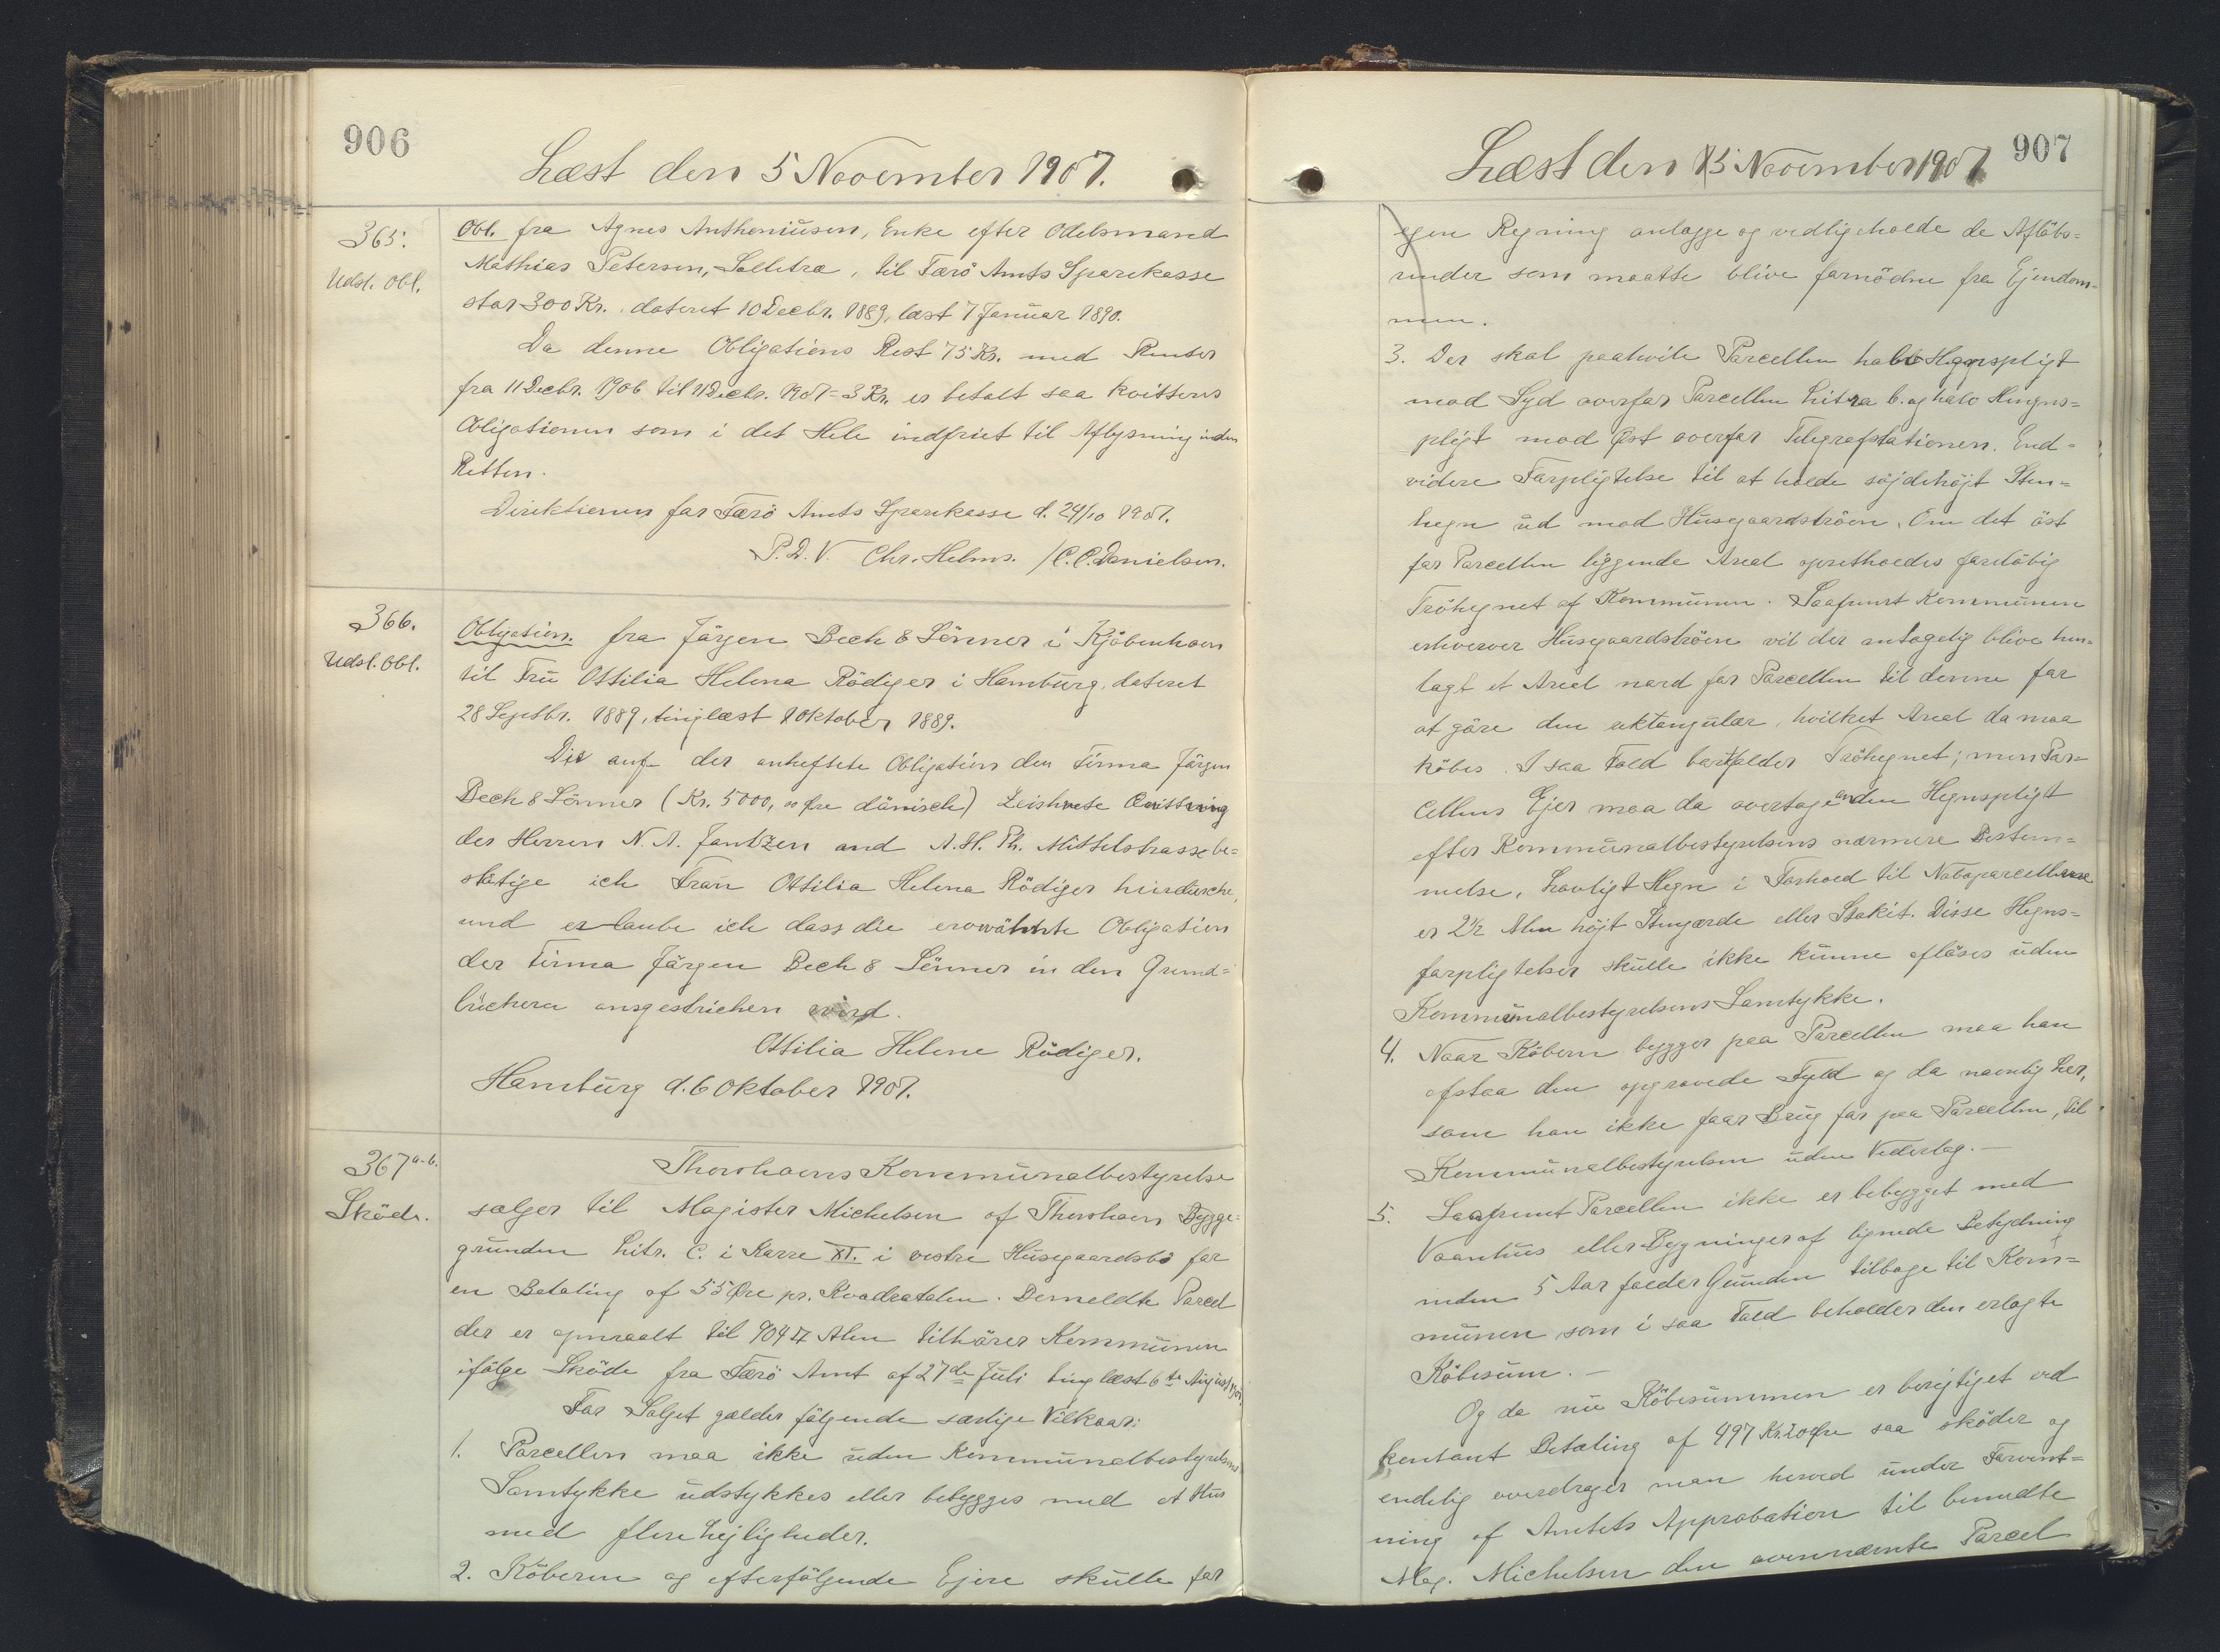 906
Læst den 5 November 1907.
365.
Udsl. Obl.
Obl. fra Agnes Antheniusen, Enke efter Odelsmand
Mathias Petersen, Selletræ, til Færö Amts Sparekasse
stor 300 Kr. dateret 10 Decbr. 1889, læst 7 Januar 1890.
Da denne Obligations Rest 75 Kr. med Renter
fra 11 Decbr. 1906 til 11 Decbr. 1907 = 3 Kr. er betalt saa kvitteres
Obligationen som i det Hele indfriet til Aflysning inden
Retten.
Direktionen for Færö Amts Sparekasse d. 24/10 1907.
P.D.V. Chr. Helms. / C.C. Danielsen.
366.
Udsl. Obl.
Obligation fra Jörgen Bech & Sönner i Kjöbenhavn
til Fru Ottilia Helena Rödiger i Hamburg, dateret
28 Septbr. 1889, tinglæst 1 Oktober 1889.
Die auf der anheftete Obligation den Firma Jörgen
Bech & Sönner (Kr. 5000, 00 Öre dänisch) Quittung
der Herren N. A. Jantzen and A. H. Th. Mittelstrasse be=
stätige ich Frau Ottilia Helena Rödiger hierdurch,
und erlaube ich dass die erwähnte Obligation
der Firma Jörgen Bech & Sönner in den Grund=
büchern ausgestrichen wird.
Ottilia Helene Rödiger.
Hamburg d. 6 Oktober 1907.
367 a-b.
Sköde.
Thorshavns Kommunalbestyrelse
sælger til Magister Michelsen af Thorshavn Bygge=
grunden Litr. C. i Karre XI. i vestre Husegaardsbö for
en Betaling af 55 Öre pr. Kvadratalen. Bemeldte Parcel
der er opmaalt til 904 □ Alen tilhörer Kommunen
ifölge Sköde fra Færö Amt af 27de Juli tinglæst 6te August 1901.
For Salget gælder fölgende særlige Vilkaar:
1. Parcellen maa ikke uden Kommunalbestyrelsens
Samtykke udstykkes eller bebygges med et Hus
med flere Lejligheder.
2. Köberen og efterfölgende Ejere skulle for
907
Læst den 5 November 1907
egen Regning anlægge og vedligeholde de Aflöbs=
render som maatte blive fornödne fra Ejendom=
men.
3. Der skal paahvile Parcellen halv Hegnspligt
mod Syd overfor Parcellen Litra b. og halv Hengns=
pligt mod Øst overfor Telegrafstationen. End=
videre Forpligtelse til at holde söjdehöjt Sten=
hegn ud mod Husegaardströen. Om det öst
for Parcellen liggende Areal opretholdes foreløbig
Tröhegnet af Kommunen. Saafremt Kommunen
erhverver Husegaardströen vil der antagelig blive hen=
lagt et Areal nord for Parcellen til denne for
at göre den rektangulær, hvilket Areal da maa
köbes. I saa Fald bortfalder Tröhegnet; men Par=
cellens Ejer maa da overtage anden Hegnspligt
efter Kommunalbestyrelsens nærmere Bestem=
melse. Lovligt Hegn i Forhold til Naboparcellerne
er 2½ Alen höjt Stengærde eller Stakit. Disse Hegns=
forpligtelser skulle ikke kunne aflöses uden
Kommunalbestyrelsens Samtykke.
4. Naar Köberen bygger paa Parcellen maa han
afstaa den opgravede Fyld og da navnlig Ler,
som han ikke faar Brug for paa Parcellen, til
Kommunalbestyrelsen uden Vederlag. —
5. Saafremt Parcellen ikke er bebygget med
Vaanhus eller Bygninger af lignede Betydning
inden 5 Aar falder Grunden tilbage til Kom=
munen som i saa Fald beholder den erlagte
Köbesum. —
Og da nu Köbesummen er berigtiget ved
kontant Betaling af 497 Kr. 20 Öre saa sköder og
endelig overdrager man herved under Forvent=
ning af Amtets Approbation til bemeldte
Mag. Michelsen den ovennævnte Parcel